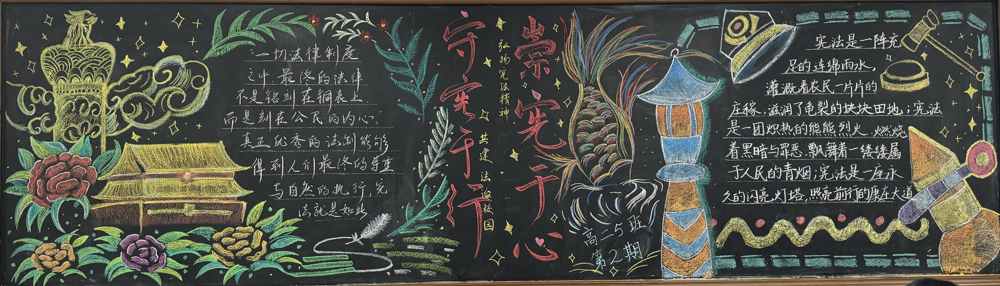 一切法律制度
之中最终的法律
不是铭刻在铜表上
而是刻在公民的内心
真正优秀的法制能够
得到人们最终的尊重
与自然的执行,宪
法就是如此
守宪于行
弘扬宪法精神
共建法治校园
崇宪于心
高二5班
第2期
宪法是一阵充
足的连绵雨水,
灌溉着农民一片片的
庄稼,滋润了龟裂的块块田地;宪法
是一团炽热的熊熊烈火,燃烧
着黑暗与罪恶,飘舞着一缕缕属
于人民的青烟;宪法是一座永
久的闪亮灯塔,照亮前行的康庄大道